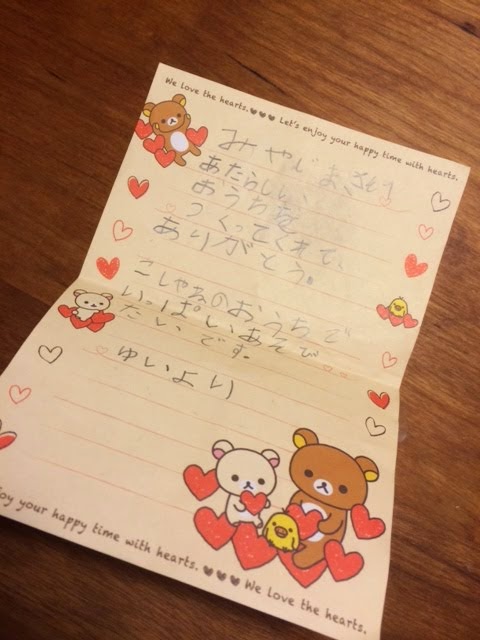 We love the hearts. Let's enjoy your happy time with hearts.
みやじま、さとり
あたらしい、
おうちを
つくってくれて、
ありがとう。
こしゃるのおうちで
いっぱいあそび
たいです。
ゆいより
joy your happy time with hearts. We love the hearts.